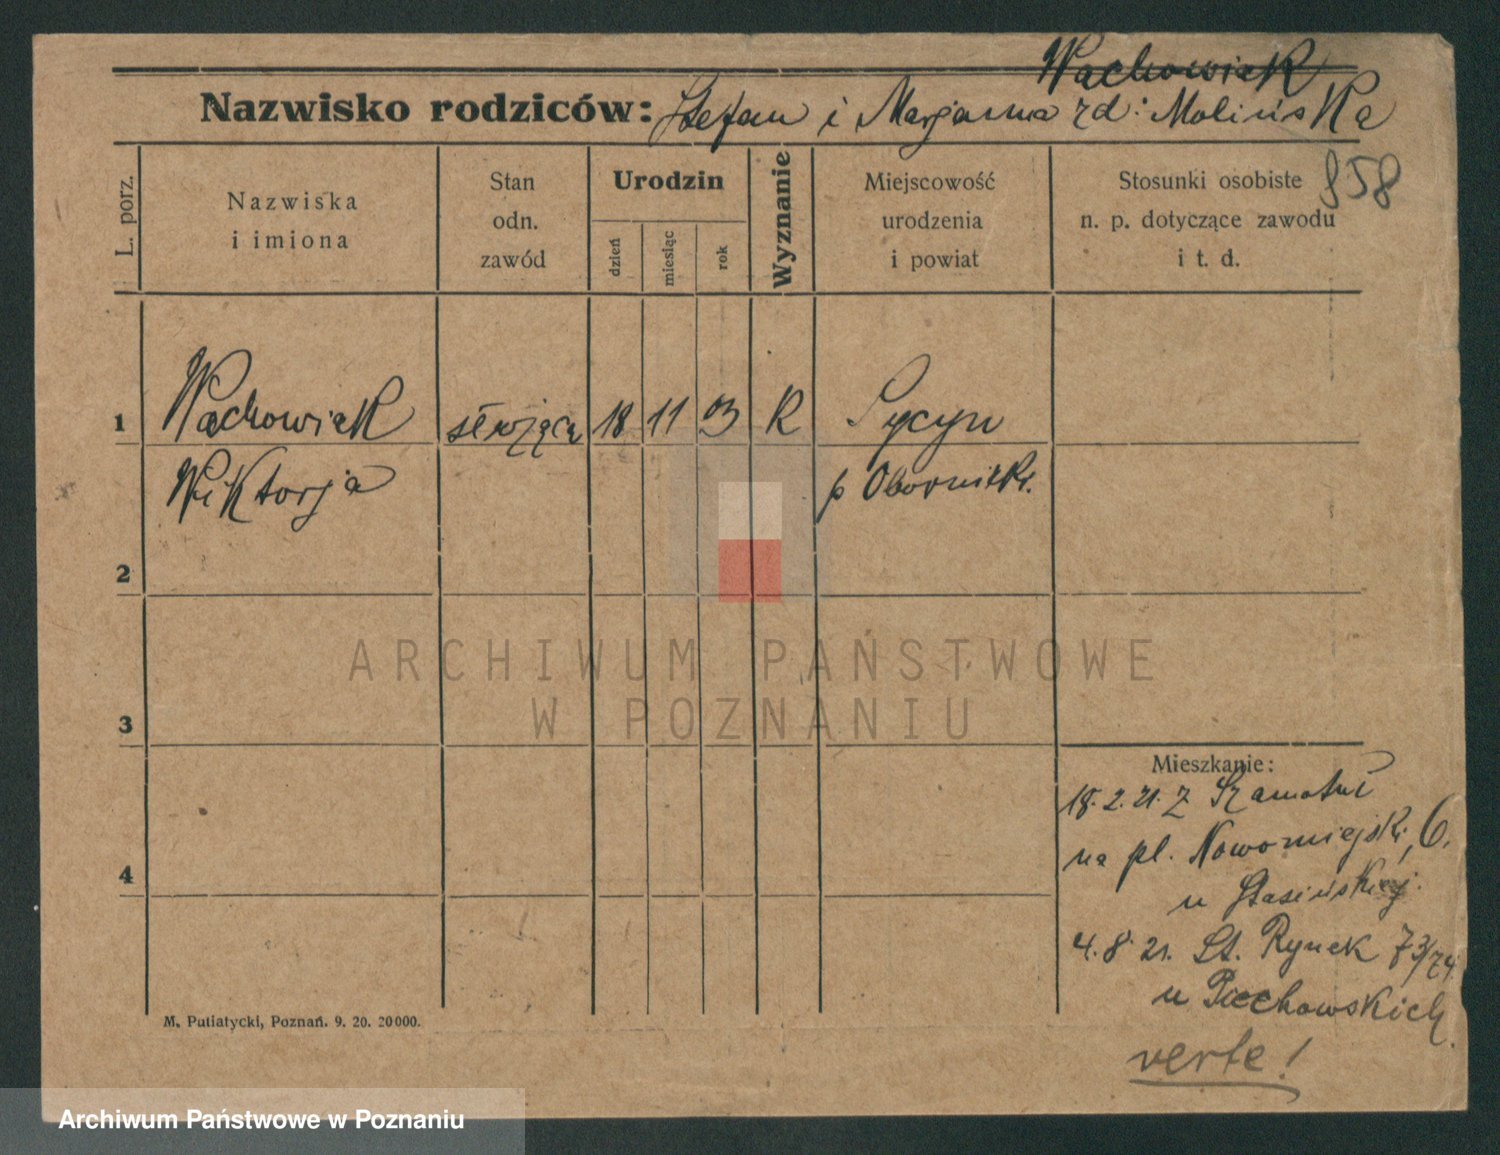 Wachowiak
Nazwisko rodziców: Stefan i Marjanna zd: Molińska
858
L. porz.
Nazwiska
i imiona
Stan
odn.
zawód
Urodzin
dzień
miesiąc
rok
Wyznanie
Miejscowość
urodzenia
i powiat
Stosunki osobiste
n. p. dotyczące zawodu
i t. d.
1 Wachowiak służąca 18 11 03 R Sycyn
Wiktorja p Obornicki.
2
3
4
ARCHIWUM PAŃSTWOWE
W POZNANIU
Mieszkanie:
18.2.21. z Szamotuł
na pl. Nowomiejski, 6.
u Stasińskiej.
4.8.21. St. Rynek 73/74
u Piechowskich
verte!
M. Putiatycki, Poznań. 9. 20. 20000.
Archiwum Państwowe w Poznaniu